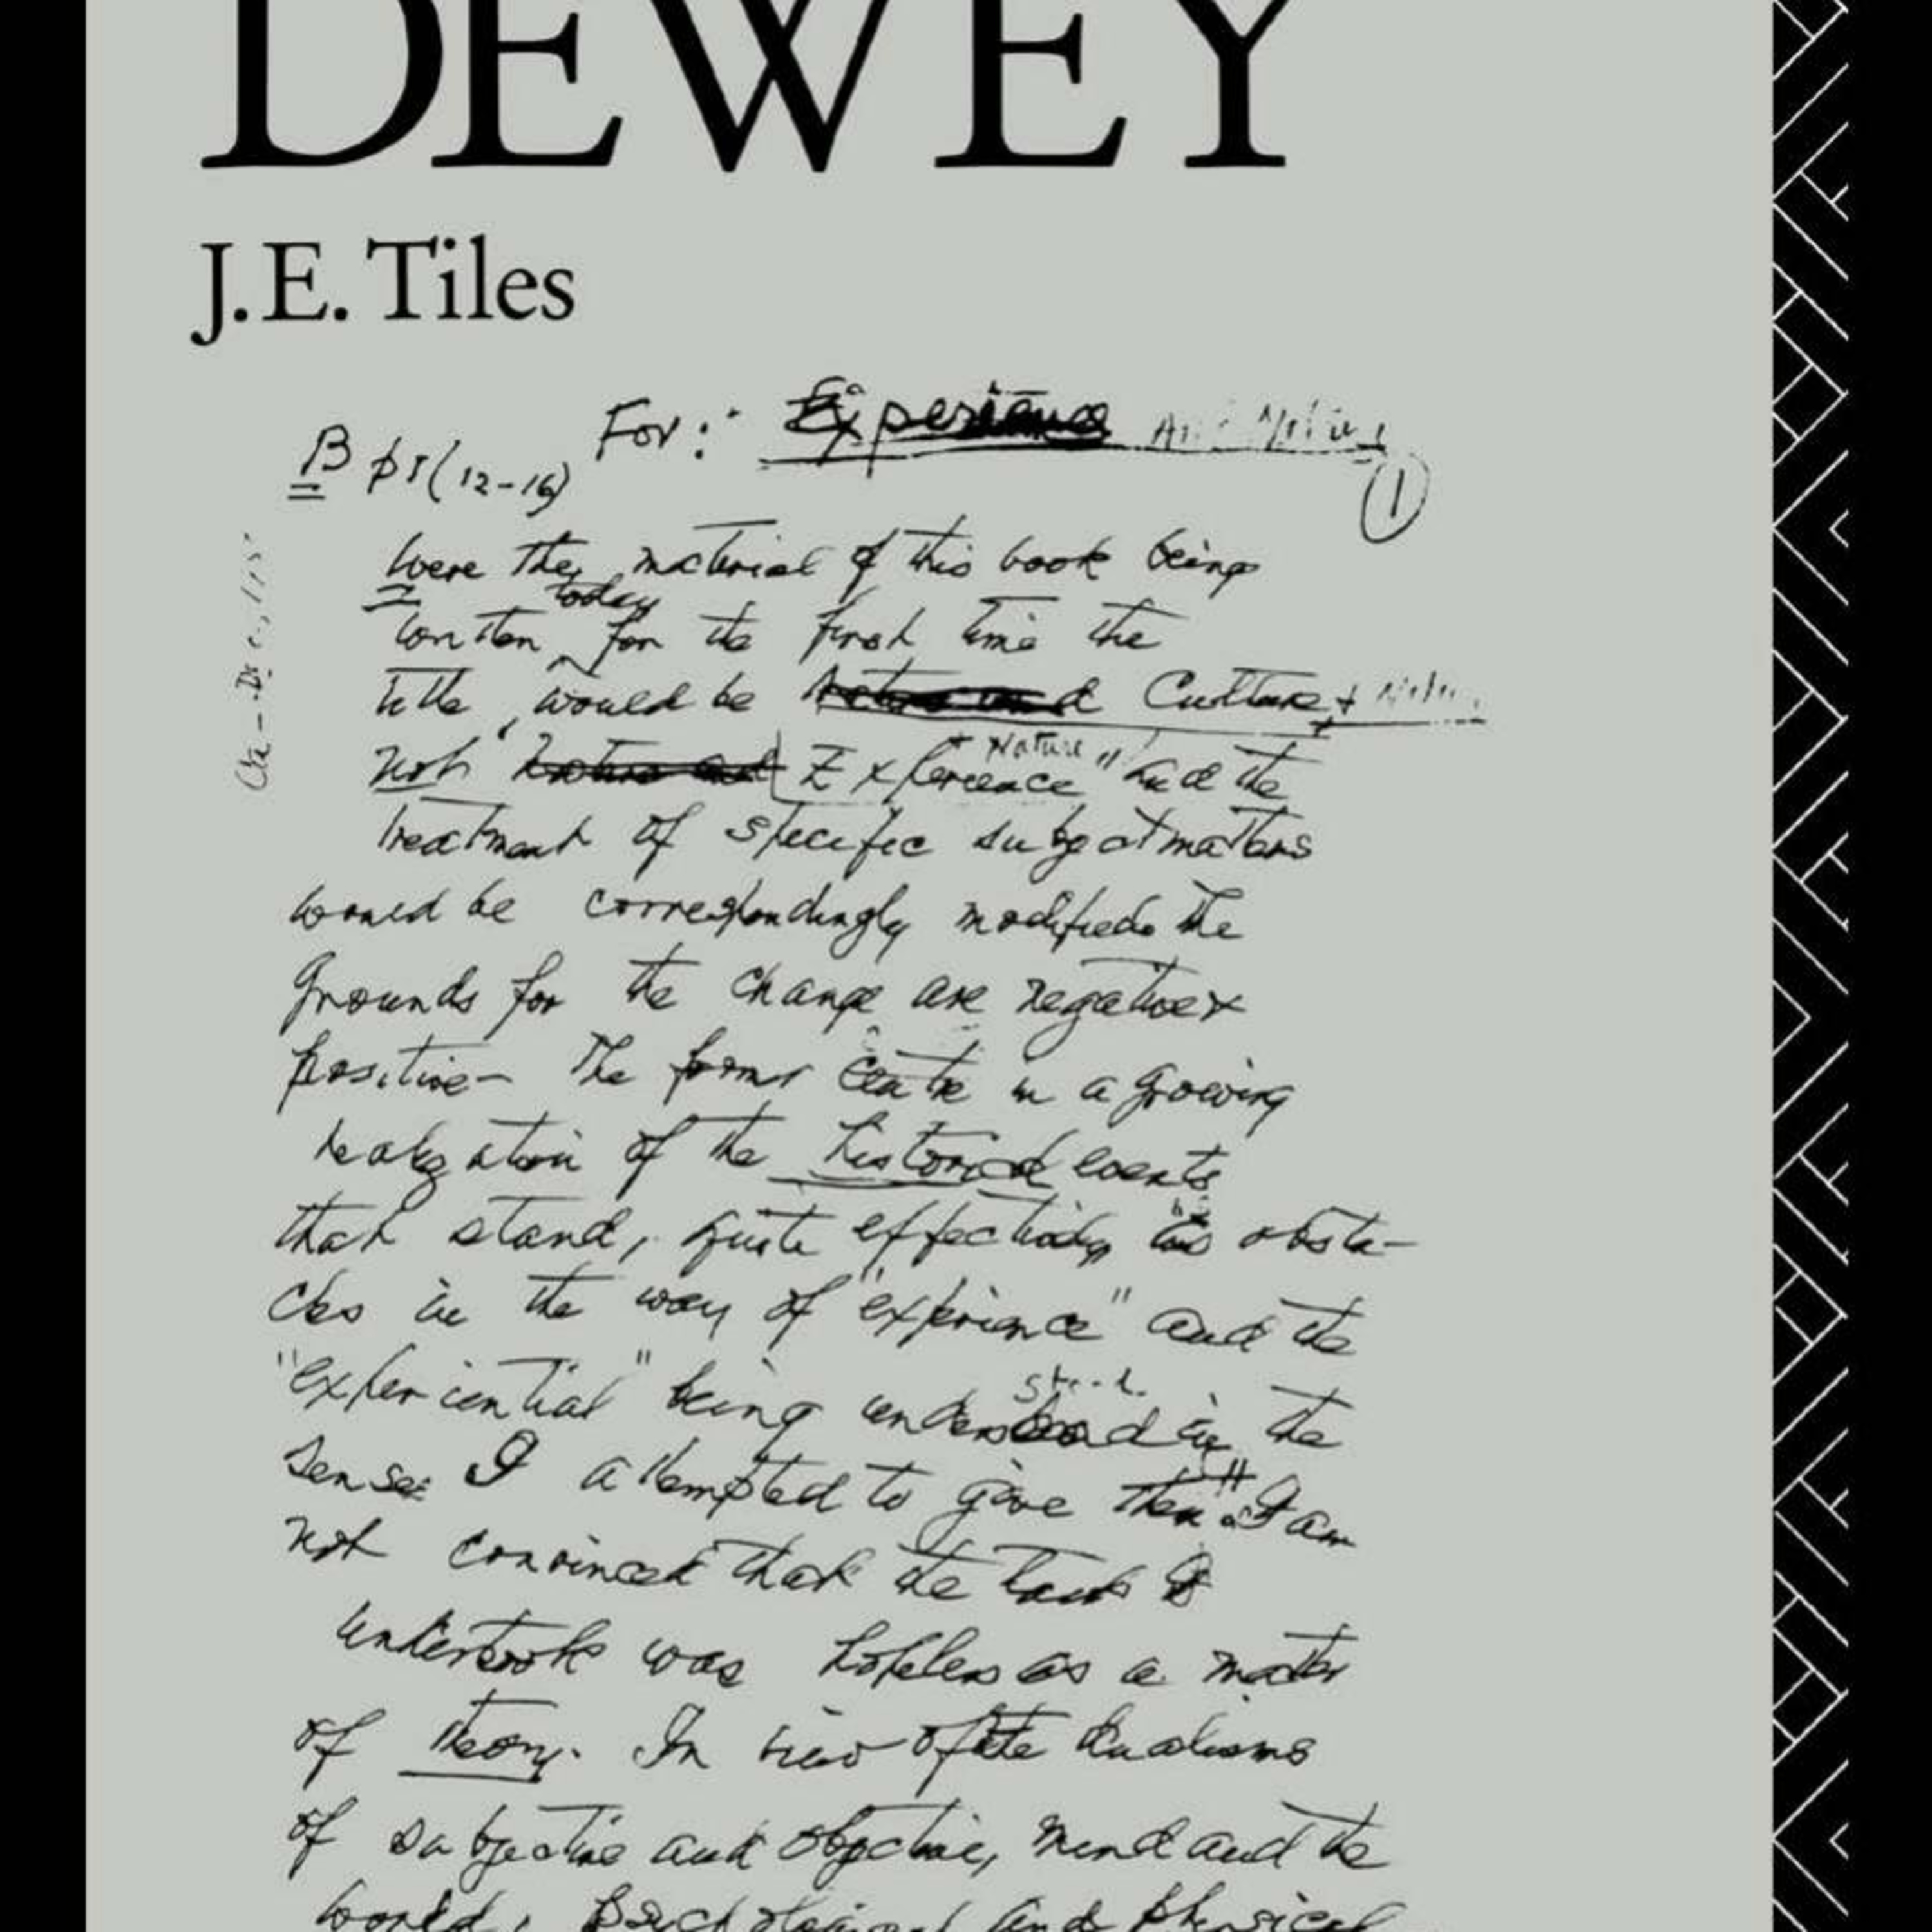 DEWEY
J.E. Tiles
For: Experience And Nature
B p5 (12-16)
1
Were the material of this book being
today
written for the first time the
title would be Culture + Nature
not Experience and the
+ Nature"
treatment of specific subjectmatters
would be correspondingly modified. The
grounds for the change are negative +
positive- The former centre in a growing
realization of the historical events
that stand, quite effectively, as obsta-
cles in the way of "experience" and the
"experiential" being understood in the
sense I attempted to give them. I am
not convinced that the task I
undertook was hopeless as a matter
of theory. In view of the dualisms
of subjective and objective, mind and the
world, psychological and physical